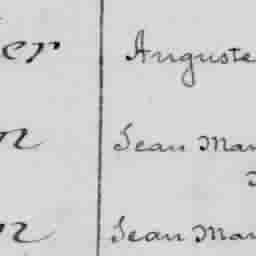 er Auguste
n Jean Mar
n Jean Mar